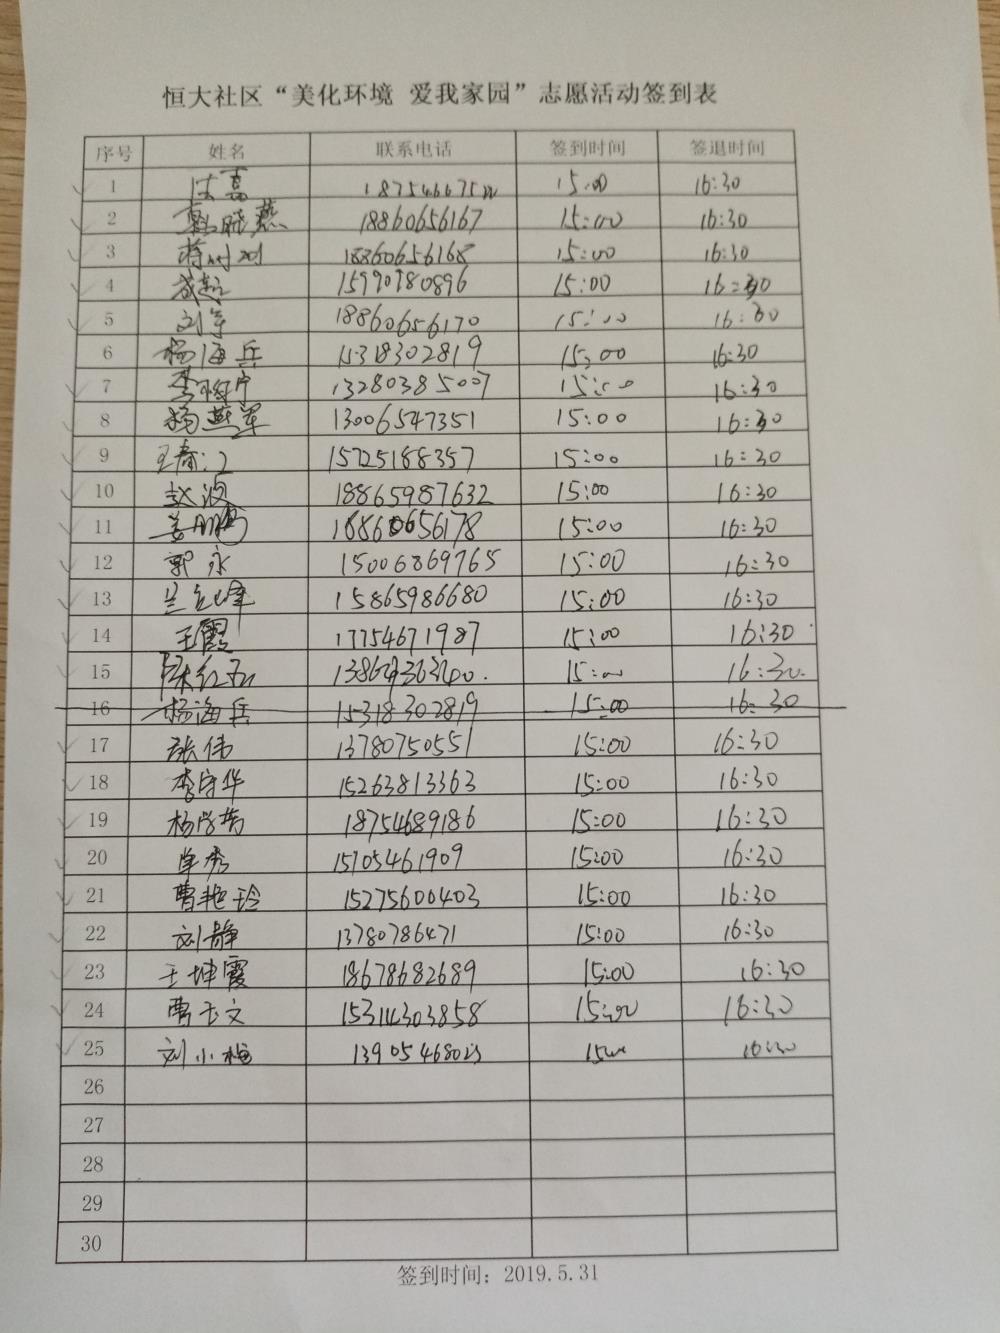 恒大社区“美化环境 爱我家园”志愿活动签到表
序号 姓名 联系电话 签到时间 签退时间
1 15:00 16:30
2 18860656167 15:00 16:30
3 18860656168 15:00 16:30
4 15990980896 15:00 16:30
5 刘军 18860656170 15:00 16:30
6 杨海兵 15318302819 15:00 16:30
7 13280385007 15:00 16:30
8 杨燕军 13006547351 15:00 16:30
9 15725188357 15:00 16:30
10 赵波 18865987632 15:00 16:30
11 18860656178 15:00 16:30
12 郭永 15006869765 15:00 16:30
13 15865986680 15:00 16:30
14 王霞 17754671987 15:00 16:30
15 15:00 16:30
16 杨海兵 15318302819 15:00 16:30
17 张伟 13780750551 15:00 16:30
18 李守华 15263813363 15:00 16:30
19 18754689186 15:00 16:30
20 15705461909 15:00 16:30
21 曹艳玲 15275600403 15:00 16:30
22 刘静 13780786471 15:00 16:30
23 王坤霞 18678682689 15:00 16:30
24 曹玉文 15314303858 15:00 16:30
25 刘小梅
26
27
28
29
30
签到时间：2019.5.31